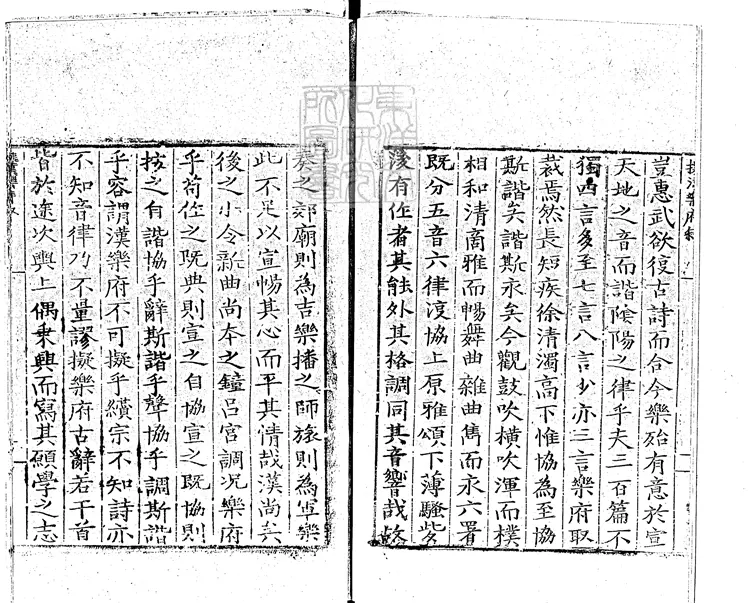 豈惠武欲復古詩而合今樂殆有意於宣
天地之音而諧陰陽之律乎夫三百篇不
獨四言多至七言八言少亦三言樂府取
裁焉然長短疾徐清濁高下惟協為至協
斯諧矣諧斯永矣今觀鼓吹橫吹渾而樸
相和清商雅而暢舞曲雜曲雋而永六署
既分五音六律淂協上原雅頌下薄騷
後有作者其能外其格調同其音響哉故
奏之郊廟則為吉樂播之師旅則為軍樂
此不足以宣暢其心而平其情哉漢尚矣
後之小令新曲尚本之鐘呂宮調况樂府
乎苟作之既典則宣之自協宣之既協則
按之自諧協乎辭斯諧乎聲協乎調斯諧
乎容謂漢樂府不可擬乎續宗不知詩亦
不知音律乃不量謬擬樂府古辭若干首
皆於途次輿上偶乘興而寫其願學之志